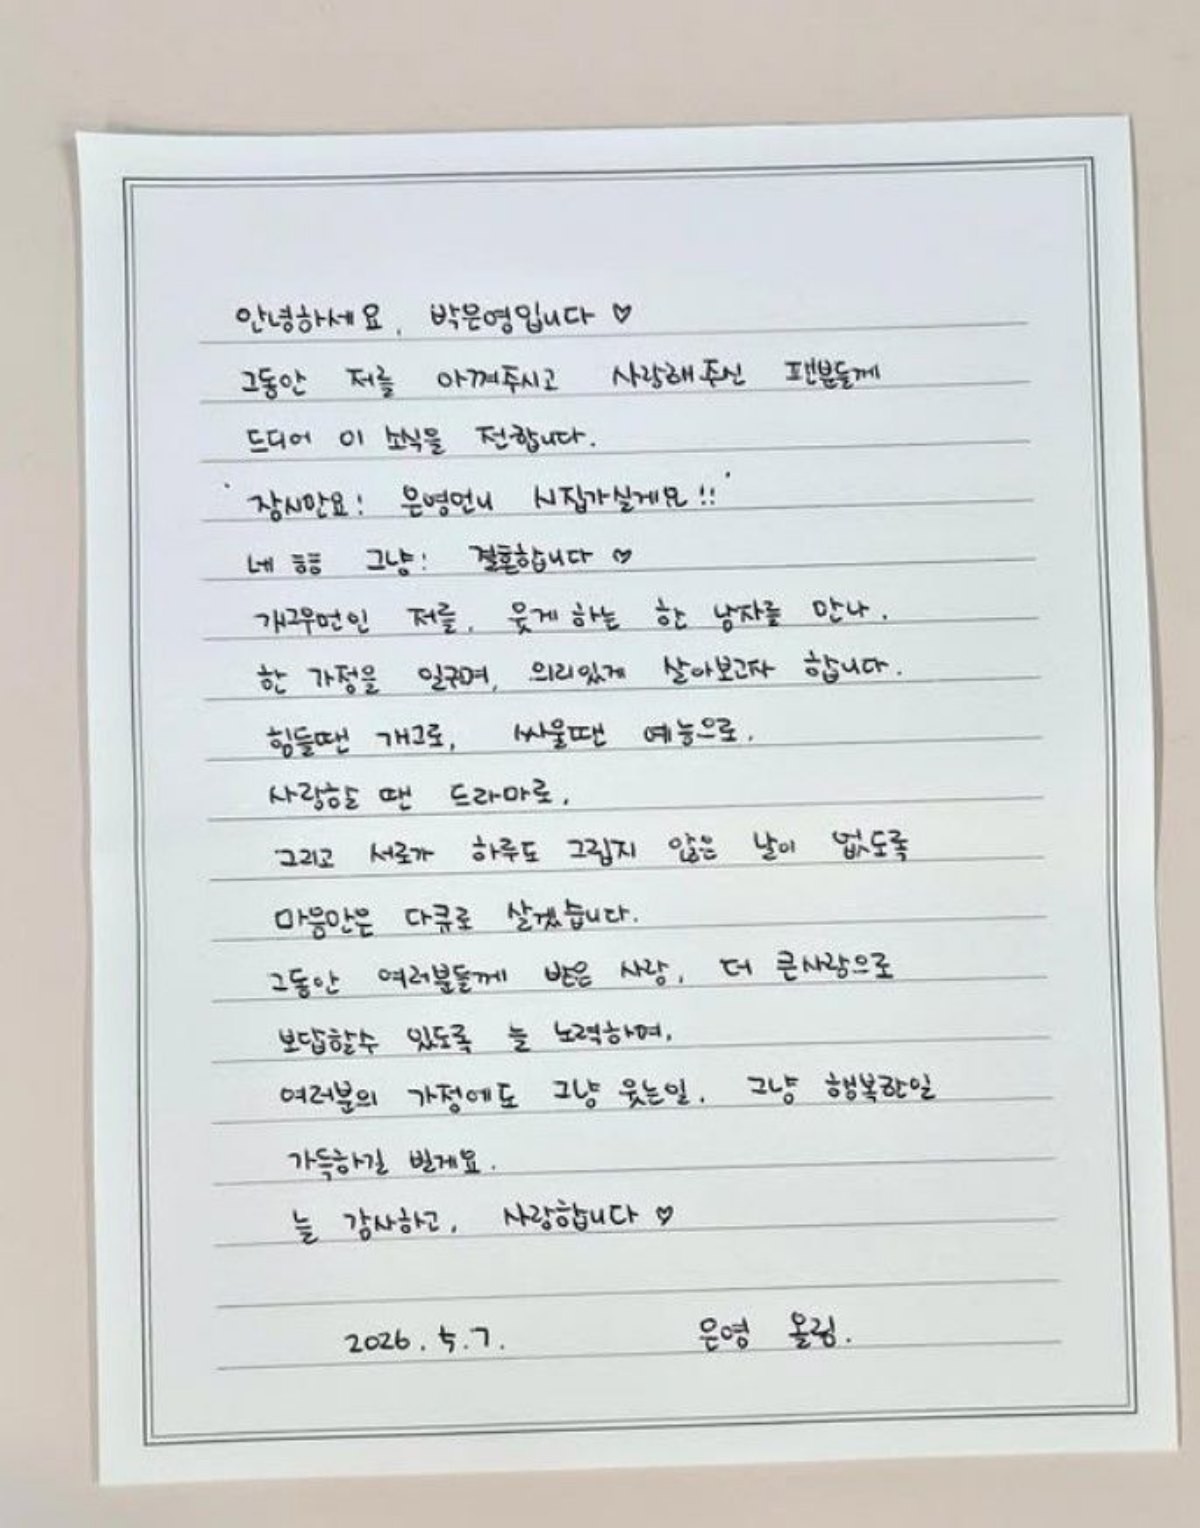 안녕하세요, 박은영입니다 ♡
그동안 저를 아껴주시고 사랑해주신 팬분들께
드디어 이 소식을 전합니다.
'잠시만요! 은영언니 시집가실게요!!'
네 흠흠 그냥! 결혼합니다 ♡
개그우먼인 저를, 웃게하는 한 남자를 만나,
한 가정을 일구며, 의리있게 살아보고자 합니다.
힘들땐 개그로, 싸울땐 예능으로,
사랑할 땐 드라마로,
그리고 서로가 하루도 그립지 않은 날이 없도록
마음만은 다큐로 살겠습니다.
그동안 여러분들께 받은 사랑, 더 큰사랑으로
보답할수 있도록 늘 노력하며,
여러분의 가정에도 그냥 웃는일, 그냥 행복한일
가득하길 빌게요.
늘 감사하고, 사랑합니다 ♡
2026. 5. 7. 은영 올림.